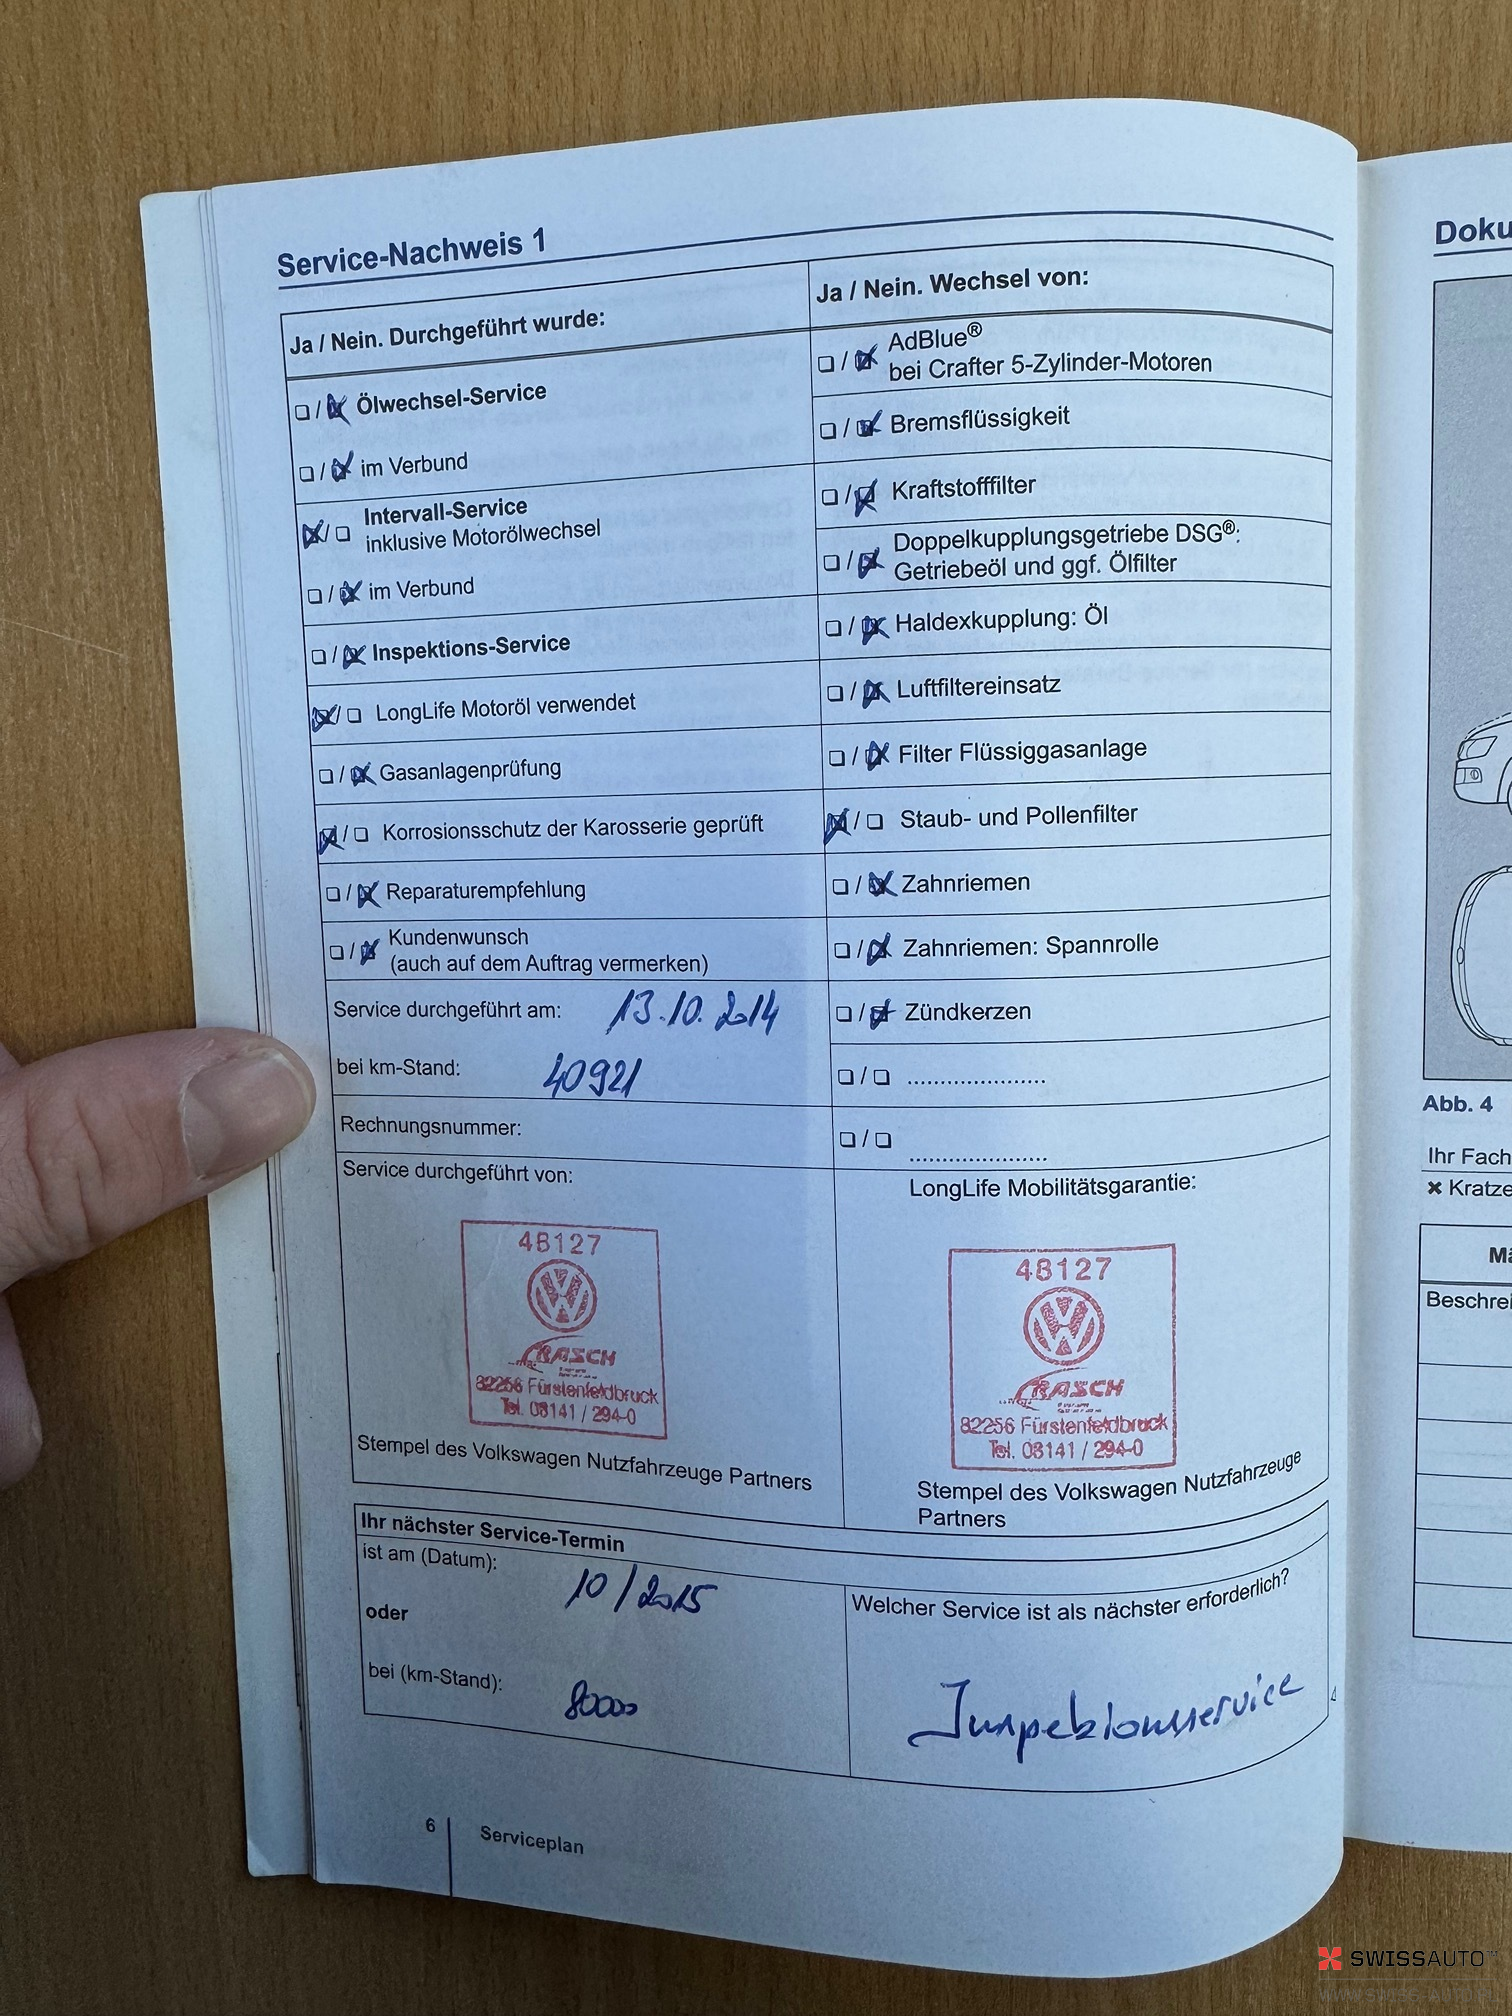 Service-Nachweis 1
Ja / Nein. Durchgeführt wurde:
❏ / ❏ Ölwechsel-Service
❏ / ❏ im Verbund
❏ / ❏ Intervall-Service
inklusive Motorölwechsel
❏ / ❏ im Verbund
❏ / ❏ Inspektions-Service
❏ / ❏ LongLife Motoröl verwendet
❏ / ❏ Gasanlagenprüfung
❏ / ❏ Korrosionsschutz der Karosserie geprüft
❏ / ❏ Reparaturempfehlung
❏ / ❏ Kundenwunsch
(auch auf dem Auftrag vermerken)
Service durchgeführt am: 13.10.2014
bei km-Stand: 40921
Rechnungsnummer:
Service durchgeführt von:
48127
RASCH
82256 Fürstenfeldbruck
Tel. 08141 / 294-0
Stempel des Volkswagen Nutzfahrzeuge Partners
Ja / Nein. Wechsel von:
❏ / ❏ AdBlue®
bei Crafter 5-Zylinder-Motoren
❏ / ❏ Bremsflüssigkeit
❏ / ❏ Kraftstofffilter
❏ / ❏ Doppelkupplungsgetriebe DSG®:
Getriebeöl und ggf. Ölfilter
❏ / ❏ Haldexkupplung: Öl
❏ / ❏ Luftfiltereinsatz
❏ / ❏ Filter Flüssiggasanlage
❏ / ❏ Staub- und Pollenfilter
❏ / ❏ Zahnriemen
❏ / ❏ Zahnriemen: Spannrolle
❏ / ❏ Zündkerzen
❏ / ❏ ......................
❏ / ❏ ......................
LongLife Mobilitätsgarantie:
48127
RASCH
82256 Fürstenfeldbruck
Tel. 08141 / 294-0
Stempel des Volkswagen Nutzfahrzeuge
Partners
Ihr nächster Service-Termin
ist am (Datum): 10/2015
oder
bei (km-Stand): 80000
Welcher Service ist als nächster erforderlich?
Inspektionsservice
6 Serviceplan
Doku
Abb. 4
Ihr Fach
✖ Kratze
Mä
Beschrei
SWISSAUTO